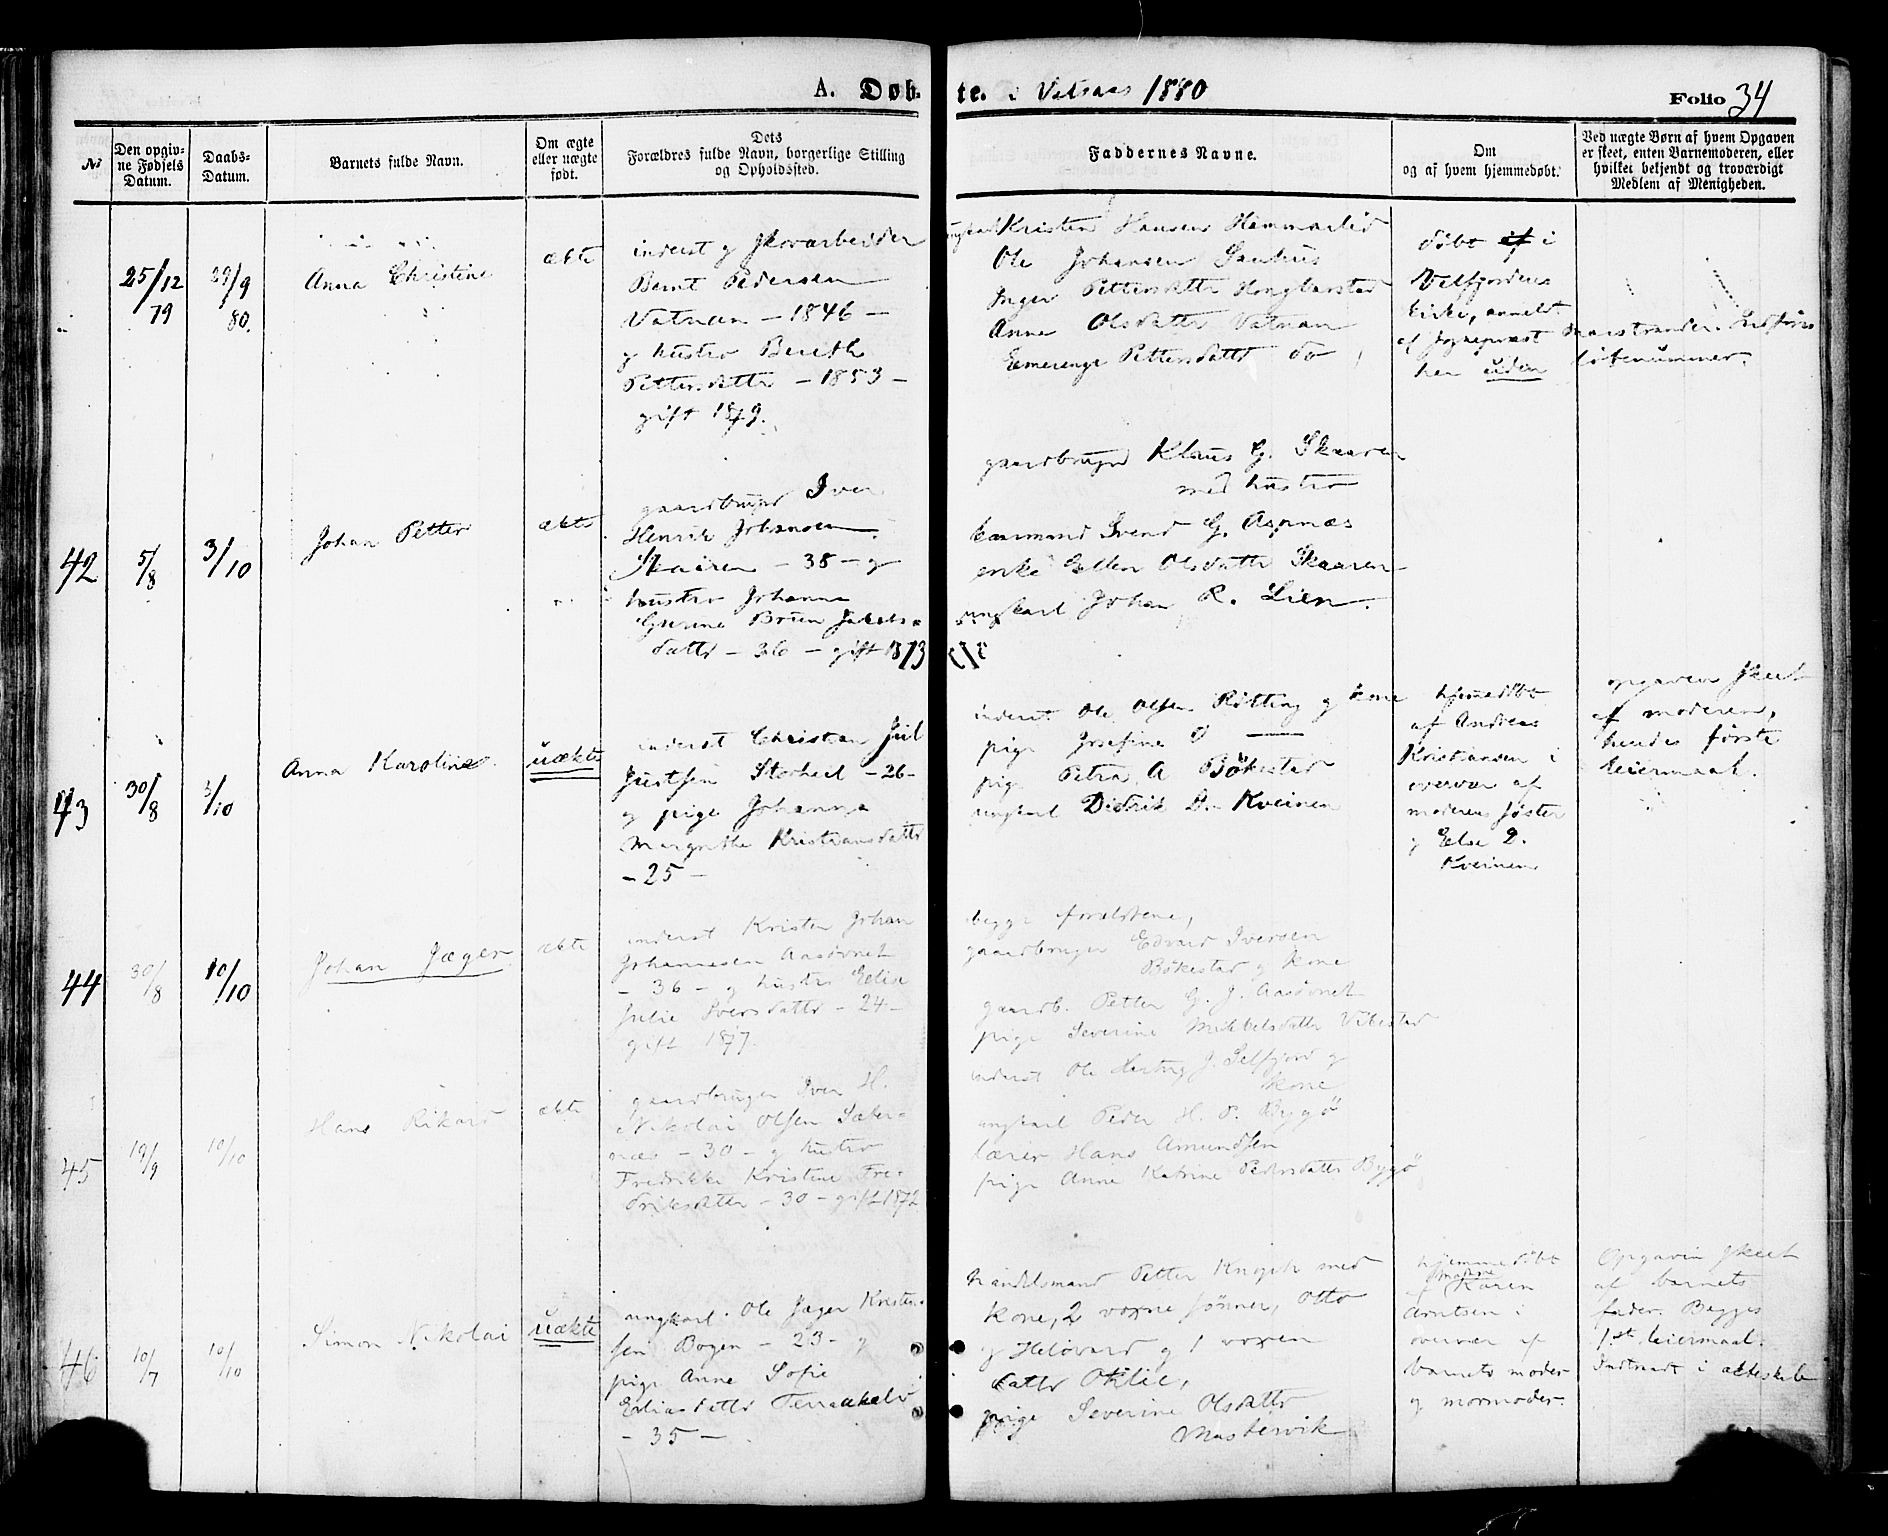 A. Døbte. i Vatsaas 1880
Folio 34
No
Den opgivne Fødsels Datum.
Daabs-Datum.
Barnets fulde Navn.
Om ægte eller uægte født.
Dets Forældres fulde Navn, borgerlige Stilling og Opholdssted.
Faddernes Navne.
Om og af hvem hjemmedøbt.
Ved uægte Børn af hvem Opgaven er skeet, enten Barnemoderen, eller hvilket bekjendt og troværdigt Medlem af Menigheden.
25/12 79
29/9 80.
Anna Christine
ækte
inderst og skovarbeider
Bernt Pedersen
Vatnan — 1846 —
og hustro Bereth
Pettersdatter — 1853 —
gift 1879.
ungkarl Kristen Hansen Hammerlid
Ole Johansen Sauhus
Inger Pettersdatter
Anne Olsdatter Vatnan
Emerenze Pettersdatter do
døbt i
Velfjordens
kirke, anmeldt
af sogneprest Marstrander. Indføres
her uden løbenummer.
42
5/8
3/10
Johan Petter
ækte
gaardbruger Iver
Henrik Johansen
Skaaren — 38 — og
hustro Johanna
Gurine Bruun Jakobs-
datter — 36 — gift 1873
gaardbruger Klaus G. Skaaren
med hustro
kaarmand Svend G. Aspnæs
enke Ellen Olsdatter Skaaren
ungkarl Johan R. Lien.
43
30/8
3/10
Anna Karoline
uækte
inderst Christian Juul
Justsen Storheil — 26 —
og pige Johanna
Margrethe Kristiansdatter
— 25 —
inderst Ole Olsen Røtting og kone
pige Josefine O —
pige Petra A Bøkestad
ungkarl Didrik D. Kveinen
hjemedøbt
af Andreas
Kristiansen i
overvær af
moderens søster
og Else D.
Kveinen
opgaven skeet
af moderen,
hendes første
leiermaal.
44
30/8
10/10
Johan Jæger
ækte
inderst Kristen Johan
Johannesen Aasdovnet
— 36 — og hustro Elise
Julie Iversdatter — 24 —
gift 1877.
begge forældrene,
gaardbruger Edvard Iversen
Bøkestad og kone
gaardb. Petter G. J. Aasdovnet
pige Severine Mikkelsdatter Vibestad
45
19/9
10/10
Hans Rikard
ækte
gaardbruger Iver H.
Nikolai Olsen Sæter-
næs — 30 — og hustro
Fredrikke Kristine Fre-
driksdatter — 30 — gift 1872
inderst Ole Hertug J. Selfjord og
kone
ungkarl Peder H. P. Bygø
lærer Hans Amundsen
pige Anne Katrine Pedersdatter Bygø
46
10/7
10/10
Simon Nikolai
uækte
ungkarl Ole Jæger Kristen-
sen Bogen — 23 — og
pige Anne Sofie
Eliasdatter Terraakelv
— 35 —
handelsmand Petter Knoph med
kone, 2 voxne sønner, Otto
og Heløvard og 1 voxen
datter Otilie,
pige Severine Olsdatter
Mastervik
hjemmedøbt
af madme Karen
Arntsen i
overvær af
barnets moder
og mormoder.
Opgaven skeet
af barnets
fader. Begges
1st. leiermaal.
Indtraadt i ækteskab